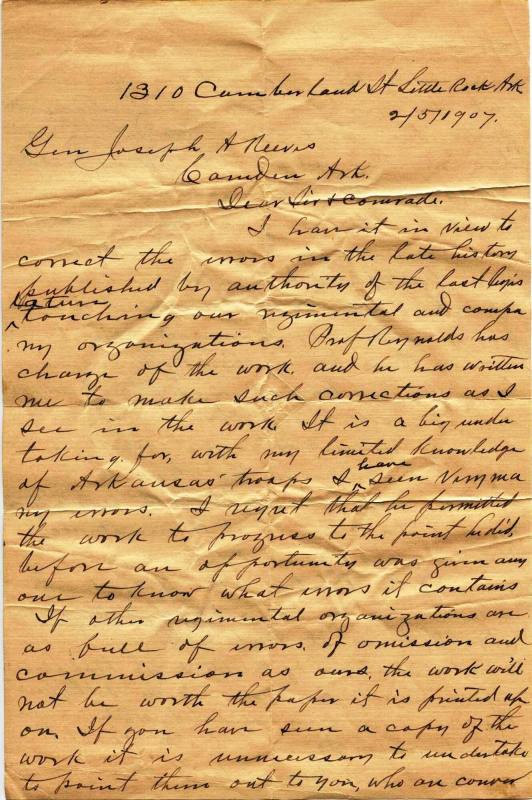 1310 Cumberland St Little Rock Ark
2/5/1907.
Gen Joseph A Reeves
Camden Ark.
Dear Sir & Comrade.
I have it in view to
correct the errors in the late history
published by authority of the last legis
lature
touching our regimental and compa
ny organizations. Prof Reynolds has
charge of the work. and he has written
me to make such corrections as I
see in the work. It is a big under
taking. for, with my limited knowledge
of Arkansas troops I have seen very ma
ny errors. I regret that he permitted
the work to progress to the point he did,
before an opportunity was given any
one to know what errors it contains
If other regimental organizations are
as full of errors. of omission and
commission as ours, the work will
not be worth the paper it is printed up
on. If you have seen a copy of the
work it is unnecessary to undertake
to point them out to you, who are conver